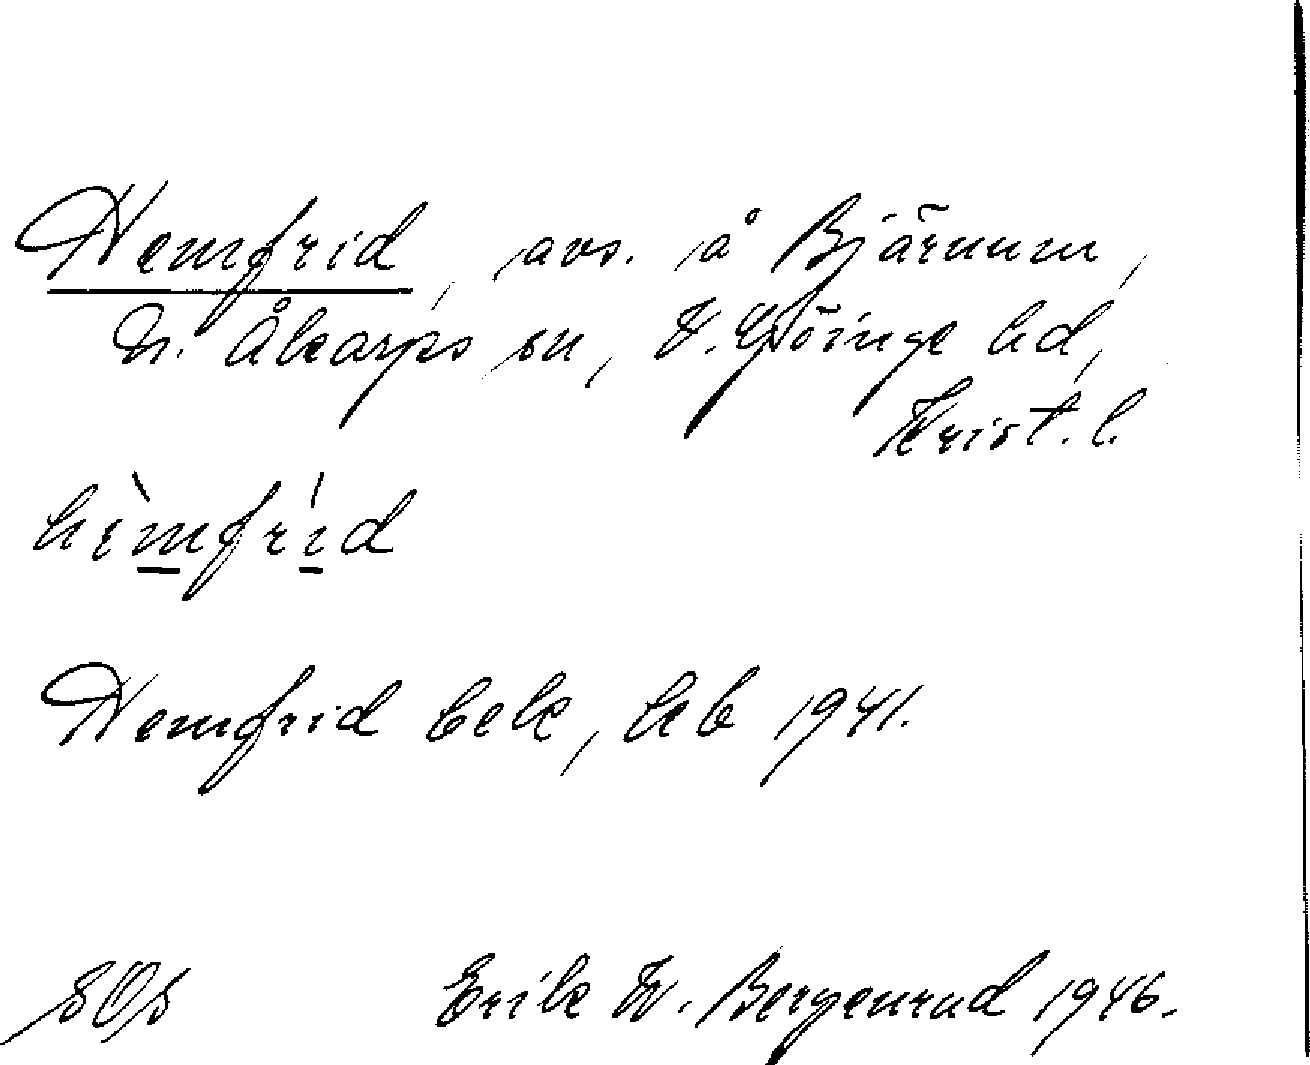 Hemfrid, avs. å Bjärnum,
N. Åkarps sn, V. Göinge hd,
Krist. l.
hèmfríd
Hemfrid bek, hb 1941.
SOS Erik W. Bergenrud 1946.